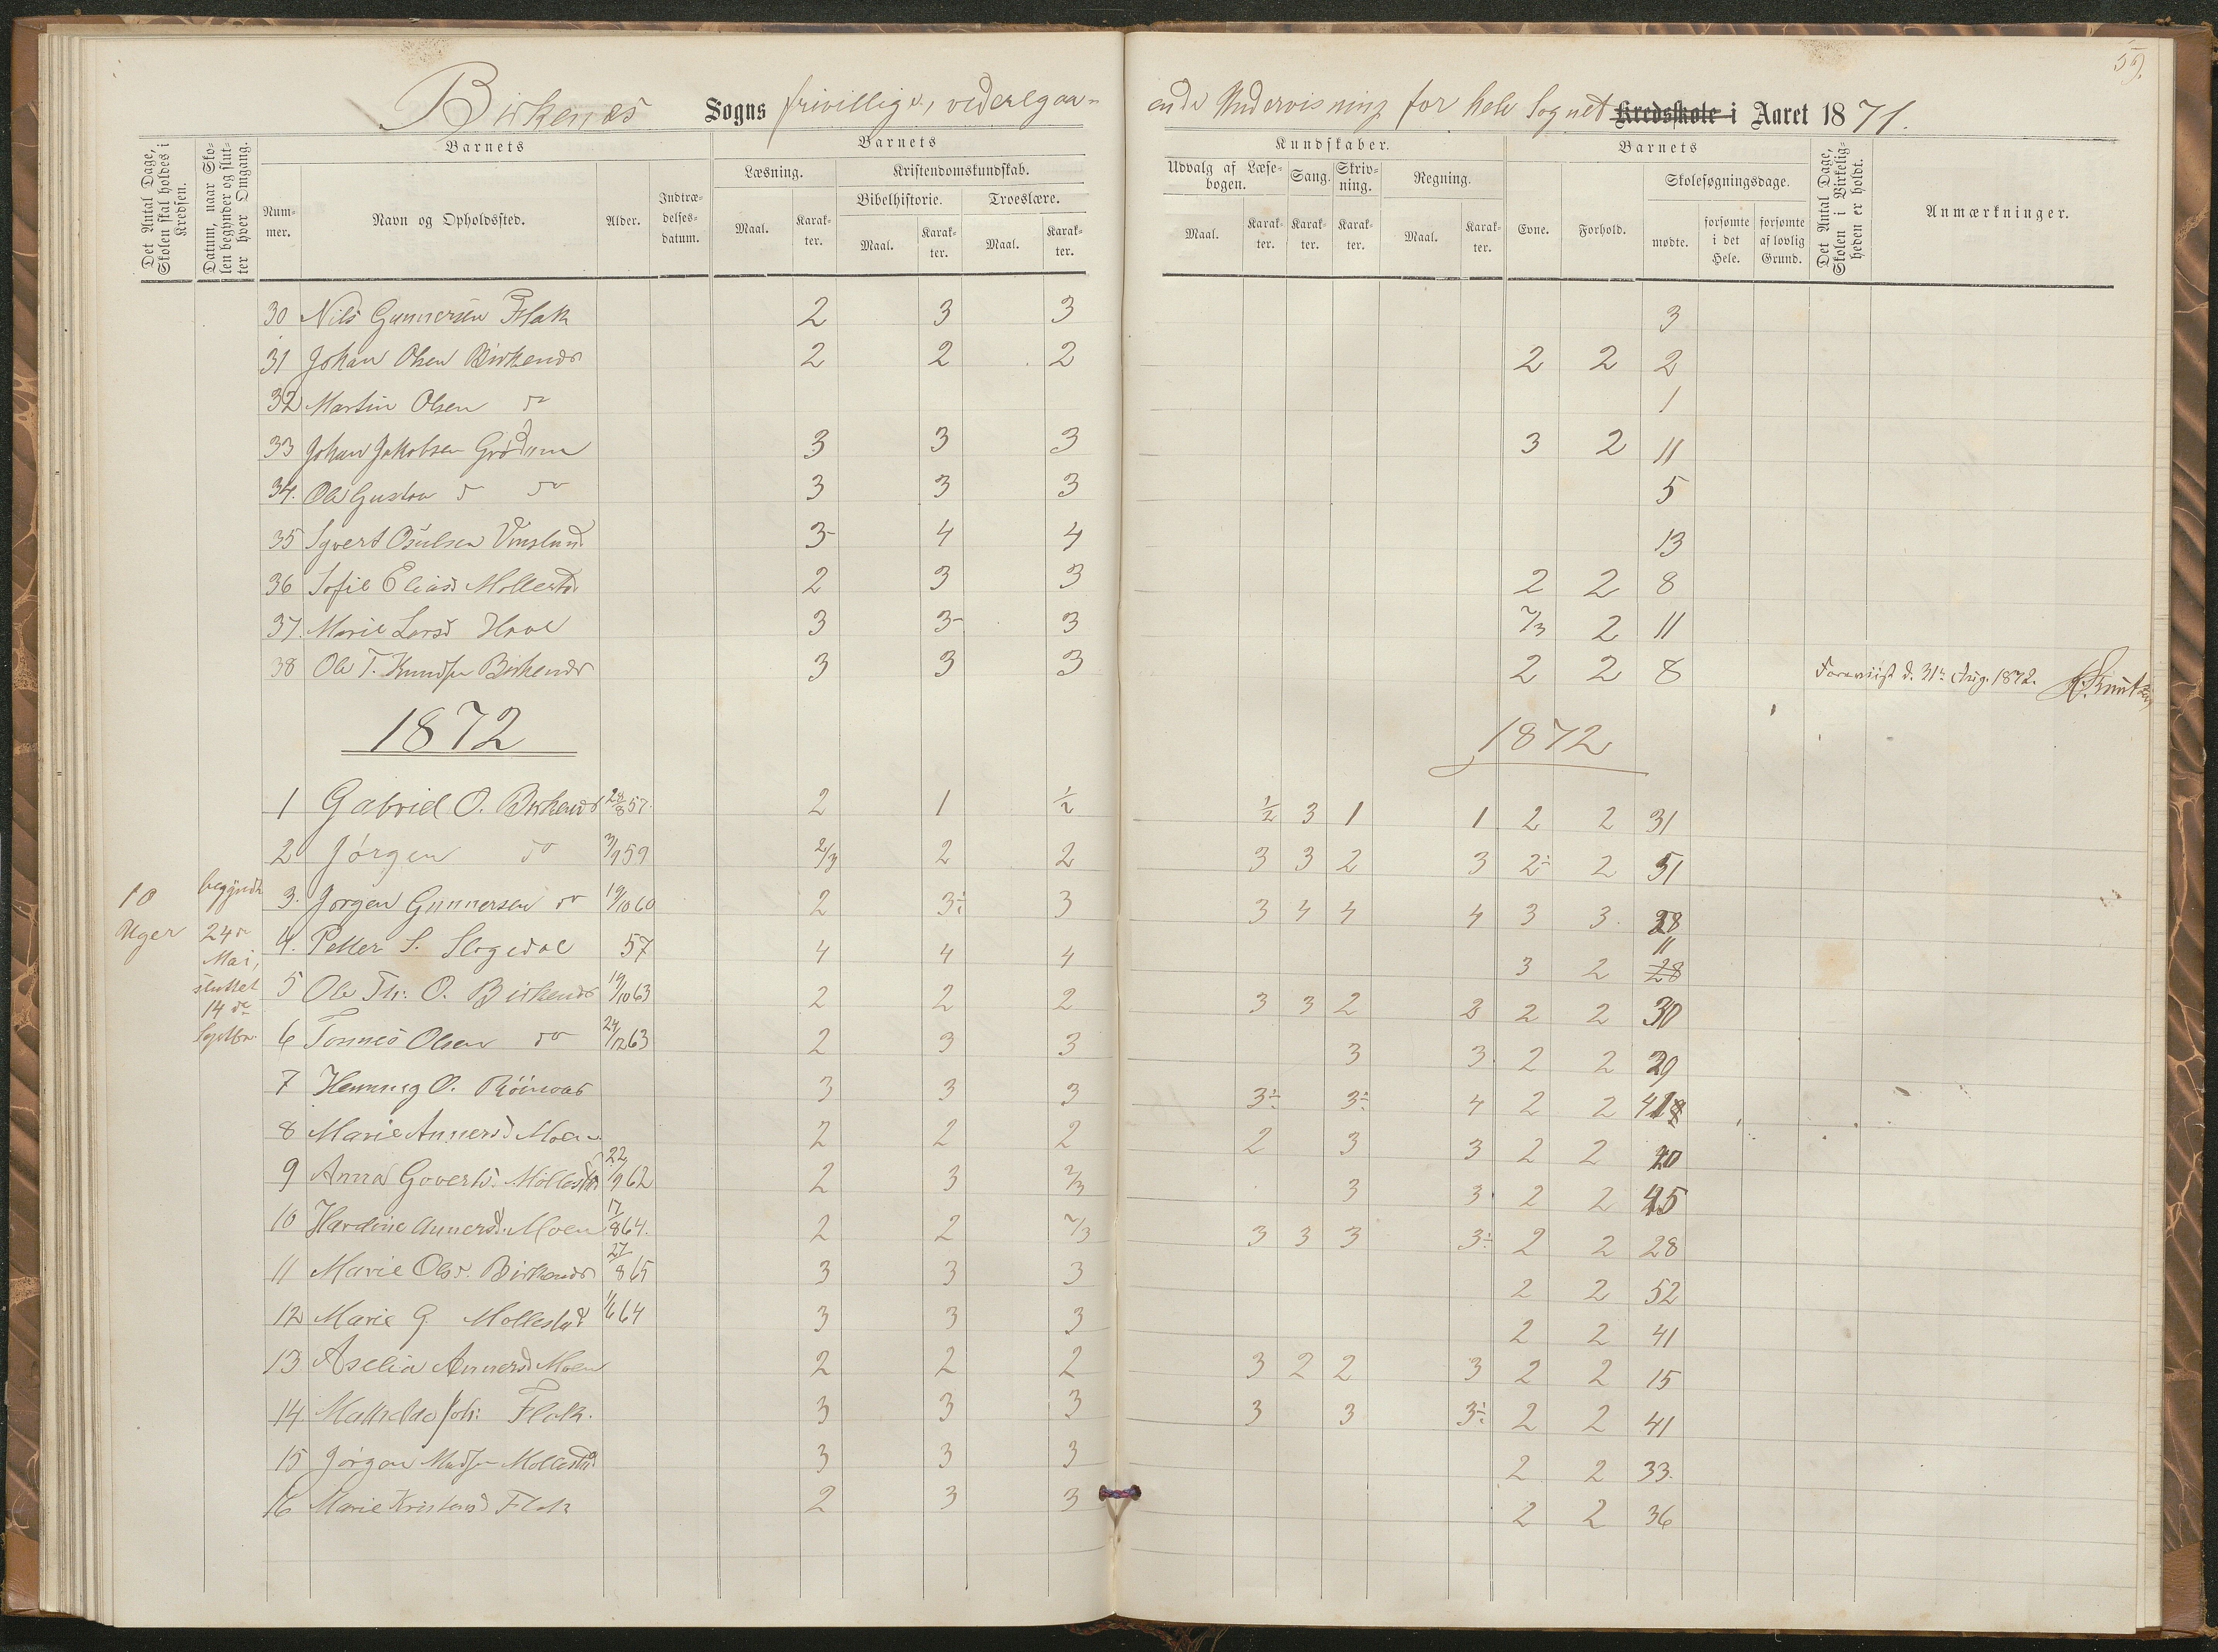 59.
Birkenæs Sogns frivillige, videregaa-
ende Undervisning for hele Sognet Kredsskole i Aaret 1871.
Det Antal Dage, Skolen skal holdes i Kredsen.
Datum, naar Skolen begynder og slutter hver Omgang.
Barnets
Nummer.
Navn og Opholdssted.
Alder.
Indtrædelsesdatum.
Barnets
Læsning.
Kristendomskundskab.
Bibelhistorie.
Troeslære.
Maal.
Karakter.
Maal.
Karakter.
Maal.
Karakter.
Kundskaber.
Udvalg af Læsebogen.
Sang.
Skrivning.
Regning.
Maal.
Karakter.
Karakter.
Karakter.
Maal.
Karakter.
Barnets
Evne.
Forhold.
Skolesøgningsdage.
mødte.
forsømte i det Hele.
forsømte af lovlig Grund.
Det Antal Dage, Skolen i Virkeligheden er holdt.
Anmærkninger.
30 Nils Gunnersen Flak 2 3 3 3
31 Johan Olsen Birkenæs 2 2 2 2 2 2
32 Martin Olsen do 1
33 Johan Jakobsen Grødum 3 3 3 3 2 11
34. Ole Gustav do do 3 3 3 5
35 Sgvert Osulsen 3- 4 4 13
36 Sofie Eliasd Mollestad 2 3 3 2 2 8
37. Marie Larsd 3 3- 3 2/3 2 11
38 Ole T. Knudsen Birkenæs 3 3 3 2 2 8 Foreviist d. 31te Aug. 1872. K. Knutzen
1872 1872
1 Gabriel O. Birkenæs 28/8 57. 2 1 1/2 1/2 3 1 1 2 2 31
2 Jørgen do 3/9 59 2/3 2 2 3 3 2 3 2÷ 2 51
3. Jørgen Gunnersen do 19/10 60 2 3÷ 3 3 4 4 4 3 3. 28
4. Petter S. Slogedal 57 4 4 4 3 2 28 11
5 Ole Th: O. Birkenæs 19/10 63 2 2 2 3 3 2 2 2 2 30
6 Tønnes Olsen do 24/12 63 2 3 3 3 3. 2 2 29
7 Henning O. 3 3 3 3÷ 3÷ 4 2 2 41
8 Marie Annersd Moen 2 2 2 2 3 3 2 2 20
9 Anna Govertsd. Mollestad 22/9 62 2 3 2/3 3 3 2 2 45
10 Hardine Annersd. Moen 17/8 64. 2 2 2/3 3 3 3 3÷ 2 2 28
11 Marie Olsd. Birkenæs 27/8 65 3 3 3 2 2 52
12 Marie G Mollestad 1/6 64 3 3 3 2 2 41
13 Aselia Annersd Moen 2 2 2 3 2 2 3 2 2 15
14. Mathilde Joh: Flak. 3 3 3 3 3 3÷ 2 2 41
15 Jørgen Madsen Mollestad 3 3 3 2 2 33.
16 Marie Kristensd Flak 2 3 3 2 2 36
10 Uger
begyndt
24de
Mai,
sluttet
14de
Septbr.